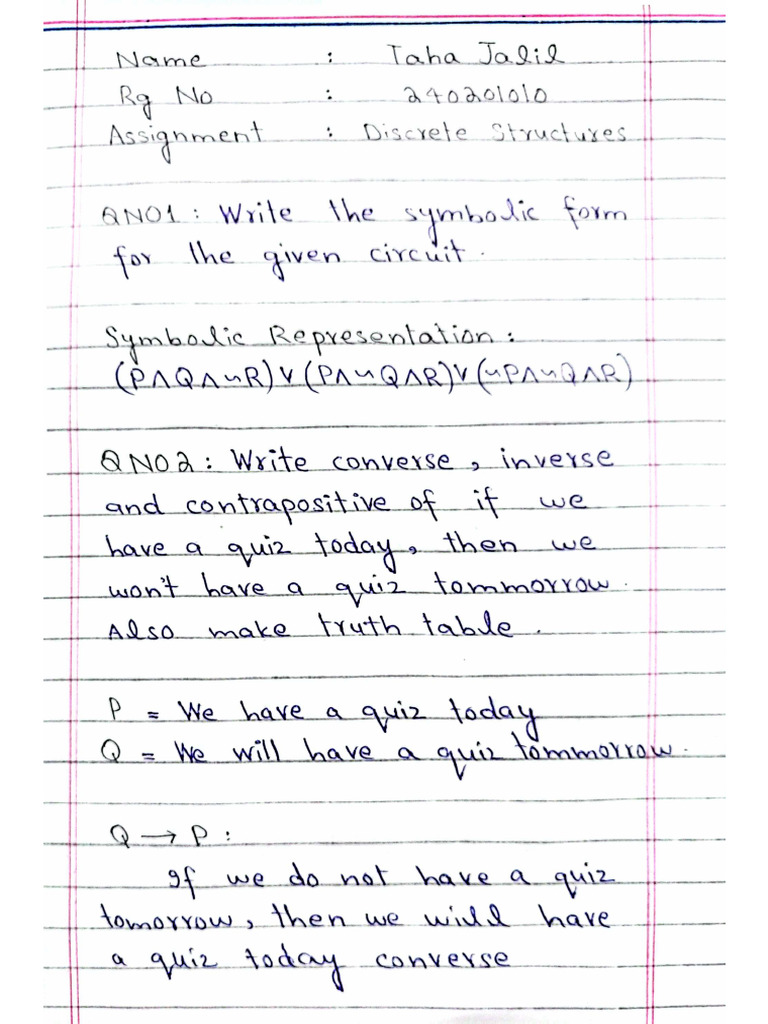 Name : Taha Jalil
Rg No : 240201010
Assignment : Discrete Structures
QNO1: Write the symbolic form
for the given circuit.
Symbolic Representation:
(P∧Q∧~R)∨(P∧~Q∧R)∨(~P∧~Q∧R)
QNO2: Write converse, inverse
and contrapositive of if we
have a quiz today, then we
won't have a quiz tommorrow.
Also make truth table.
P = We have a quiz today
Q = We will have a quiz tommorrow.
Q → P:
If we do not have a quiz
tomorrow, then we will have
a quiz today converse